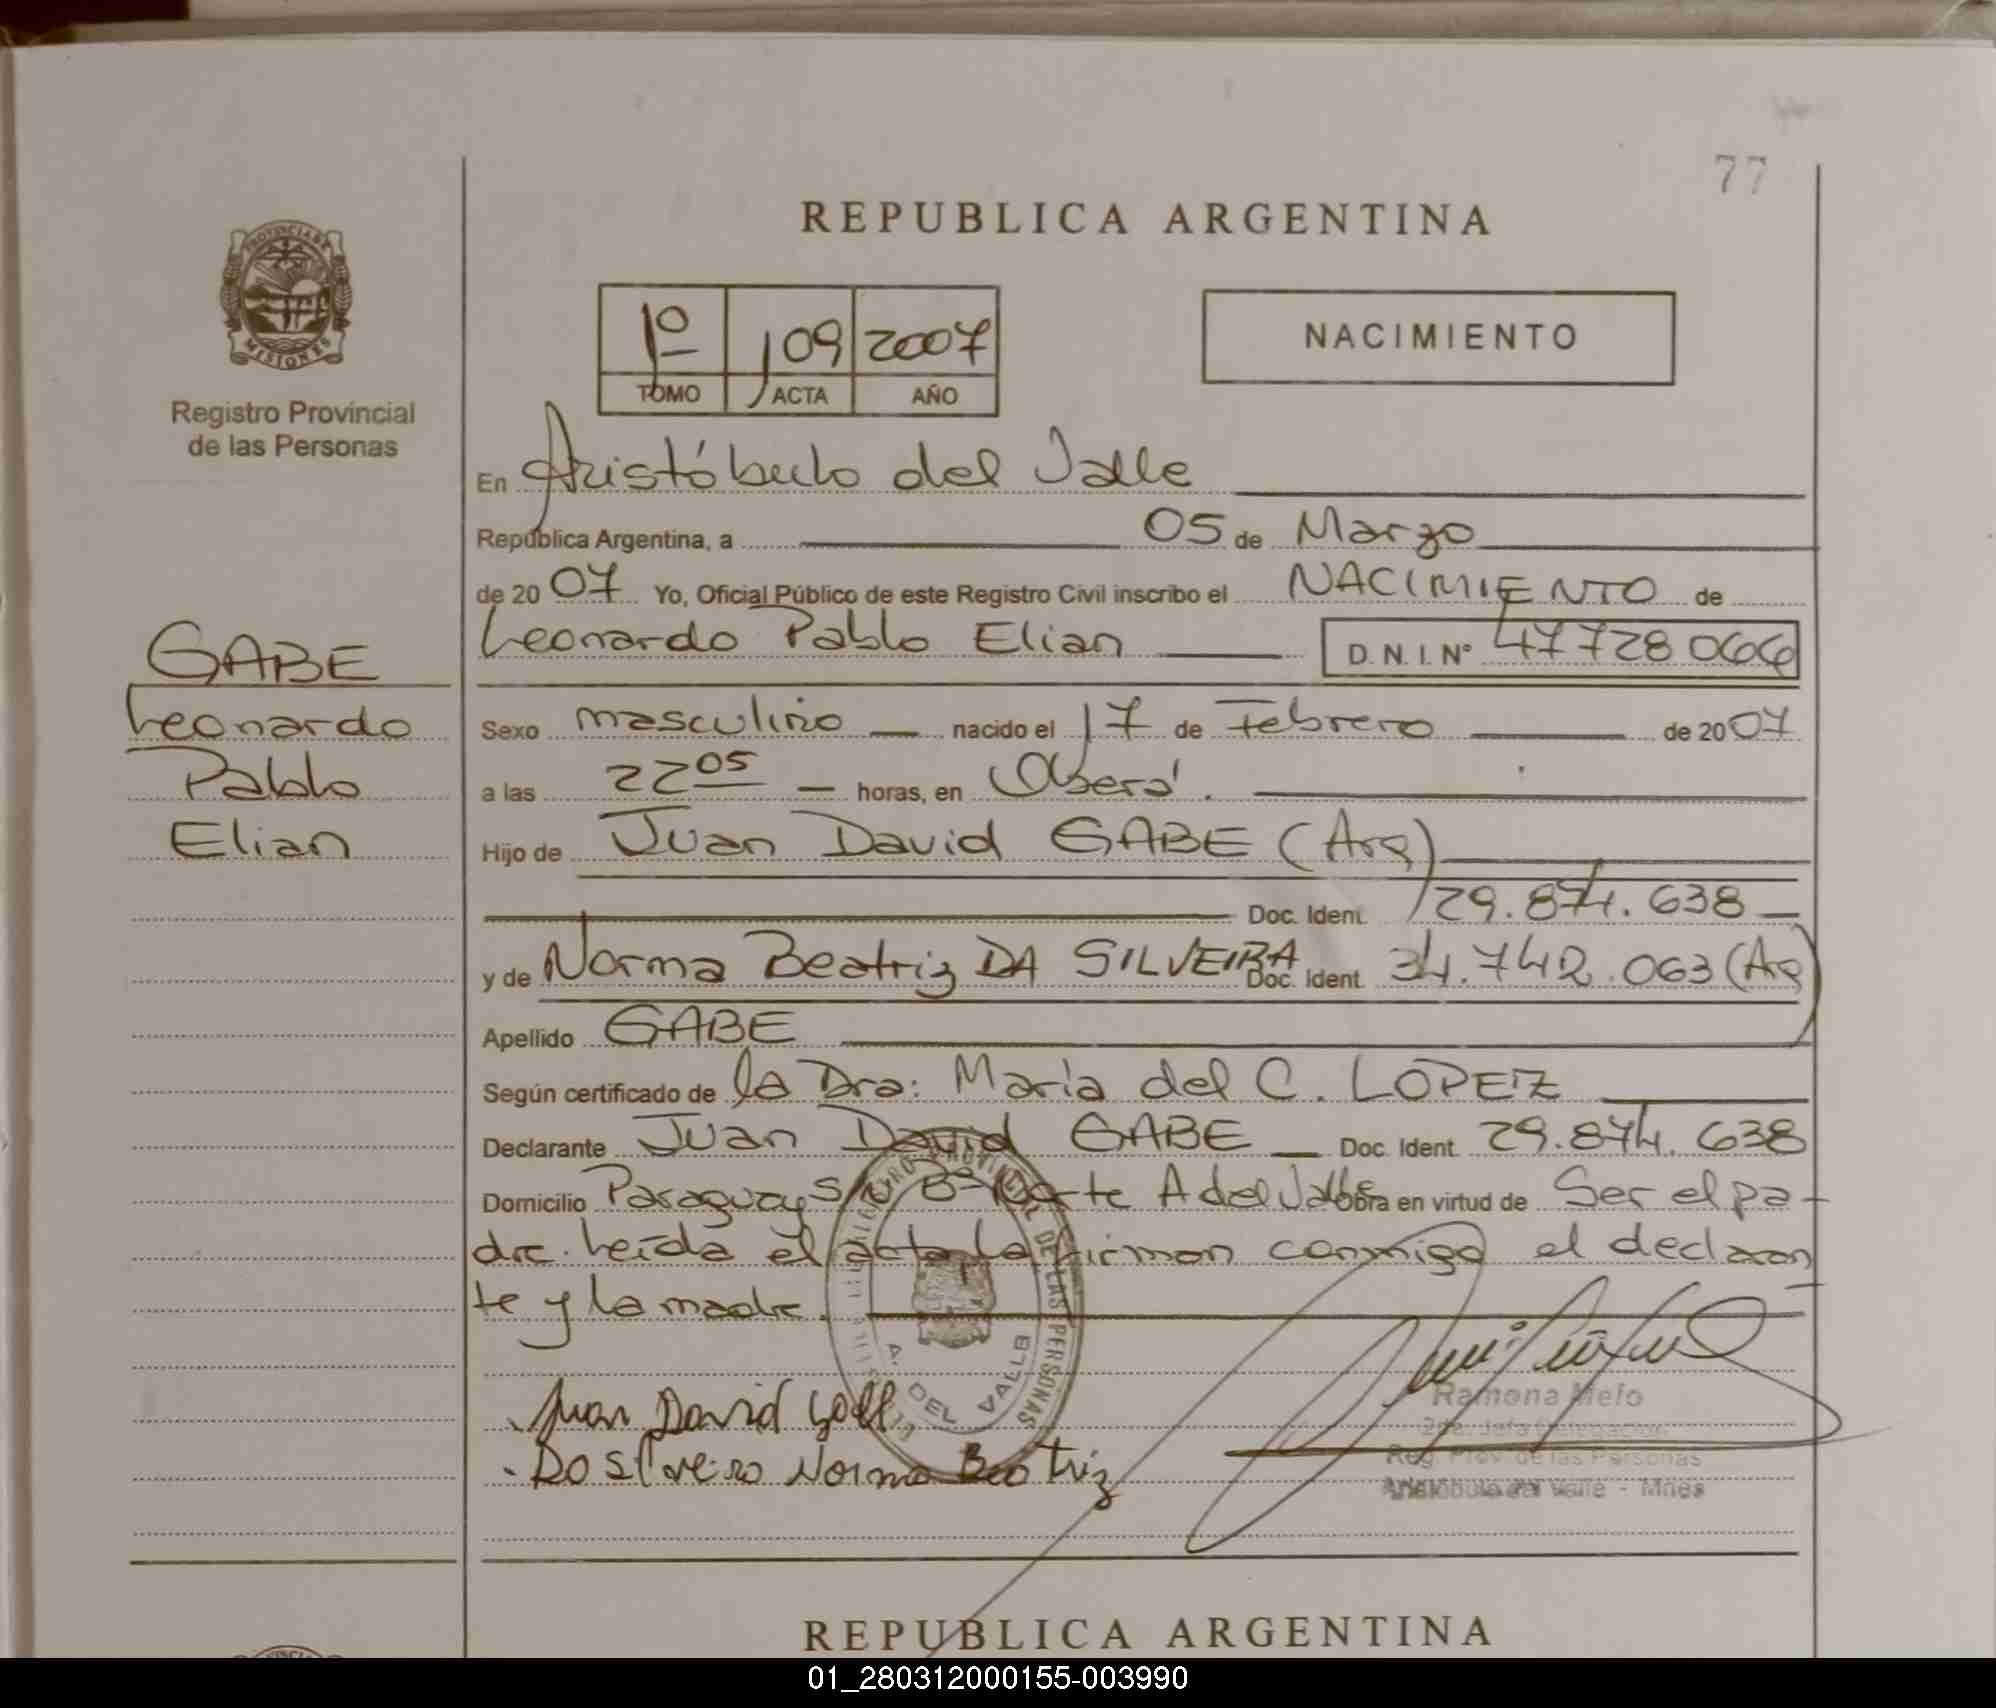 77
REPUBLICA ARGENTINA
PROVINCIA DE MISIONES
Registro Provincial
de las Personas
1º 109 2007
TOMO ACTA AÑO
NACIMIENTO
En Aristóbulo del Valle
República Argentina, a 05 de Marzo
de 2007 Yo, Oficial Público de este Registro Civil inscribo el NACIMIENTO de
Leonardo Pablo Elian D.N.I. Nº 47728066
GABE
Leonardo
Pablo
Elian
Sexo masculino nacido el 17 de Febrero de 2007
a las 22 05 horas, en Oberá.
Hijo de Juan David GABE (Arg)
Doc. Ident. 29.874.638
y de Norma Beatriz DA SILVEIRA Doc. Ident. 34.742.063 (Arg)
Apellido GABE
Según certificado de la Dra: María del C. LOPEZ
Declarante Juan David GABE Doc. Ident. 29.874.638
Domicilio Paraguay S/N Bº Norte A del Valle Obra en virtud de Ser el pa-
dre. Leída el acta la firman conmigo el declaran
te y la madre.
REGISTRO PROVINCIAL DE LAS PERSONAS
A. DEL VALLE
Juan David Gabe
Da Silveira Norma Beatriz
Ramona Melo
2da. Jefa Delegación
Reg. Prov. de las Personas
Aristóbulo del Valle - Mnes
REPUBLICA ARGENTINA
01_280312000155-003990